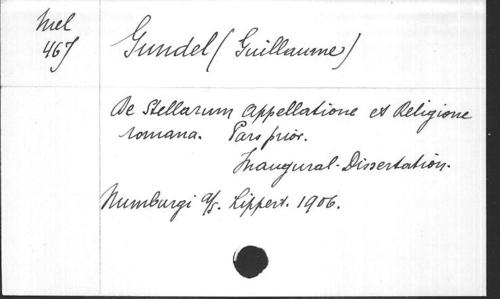 Mel
467
Gundel (Guillaume)
De Stellarum appellatione et Religione
romana. Pars prior.
Inaugural-Dissertation.
Numburgi a/S. Lippert. 1906.